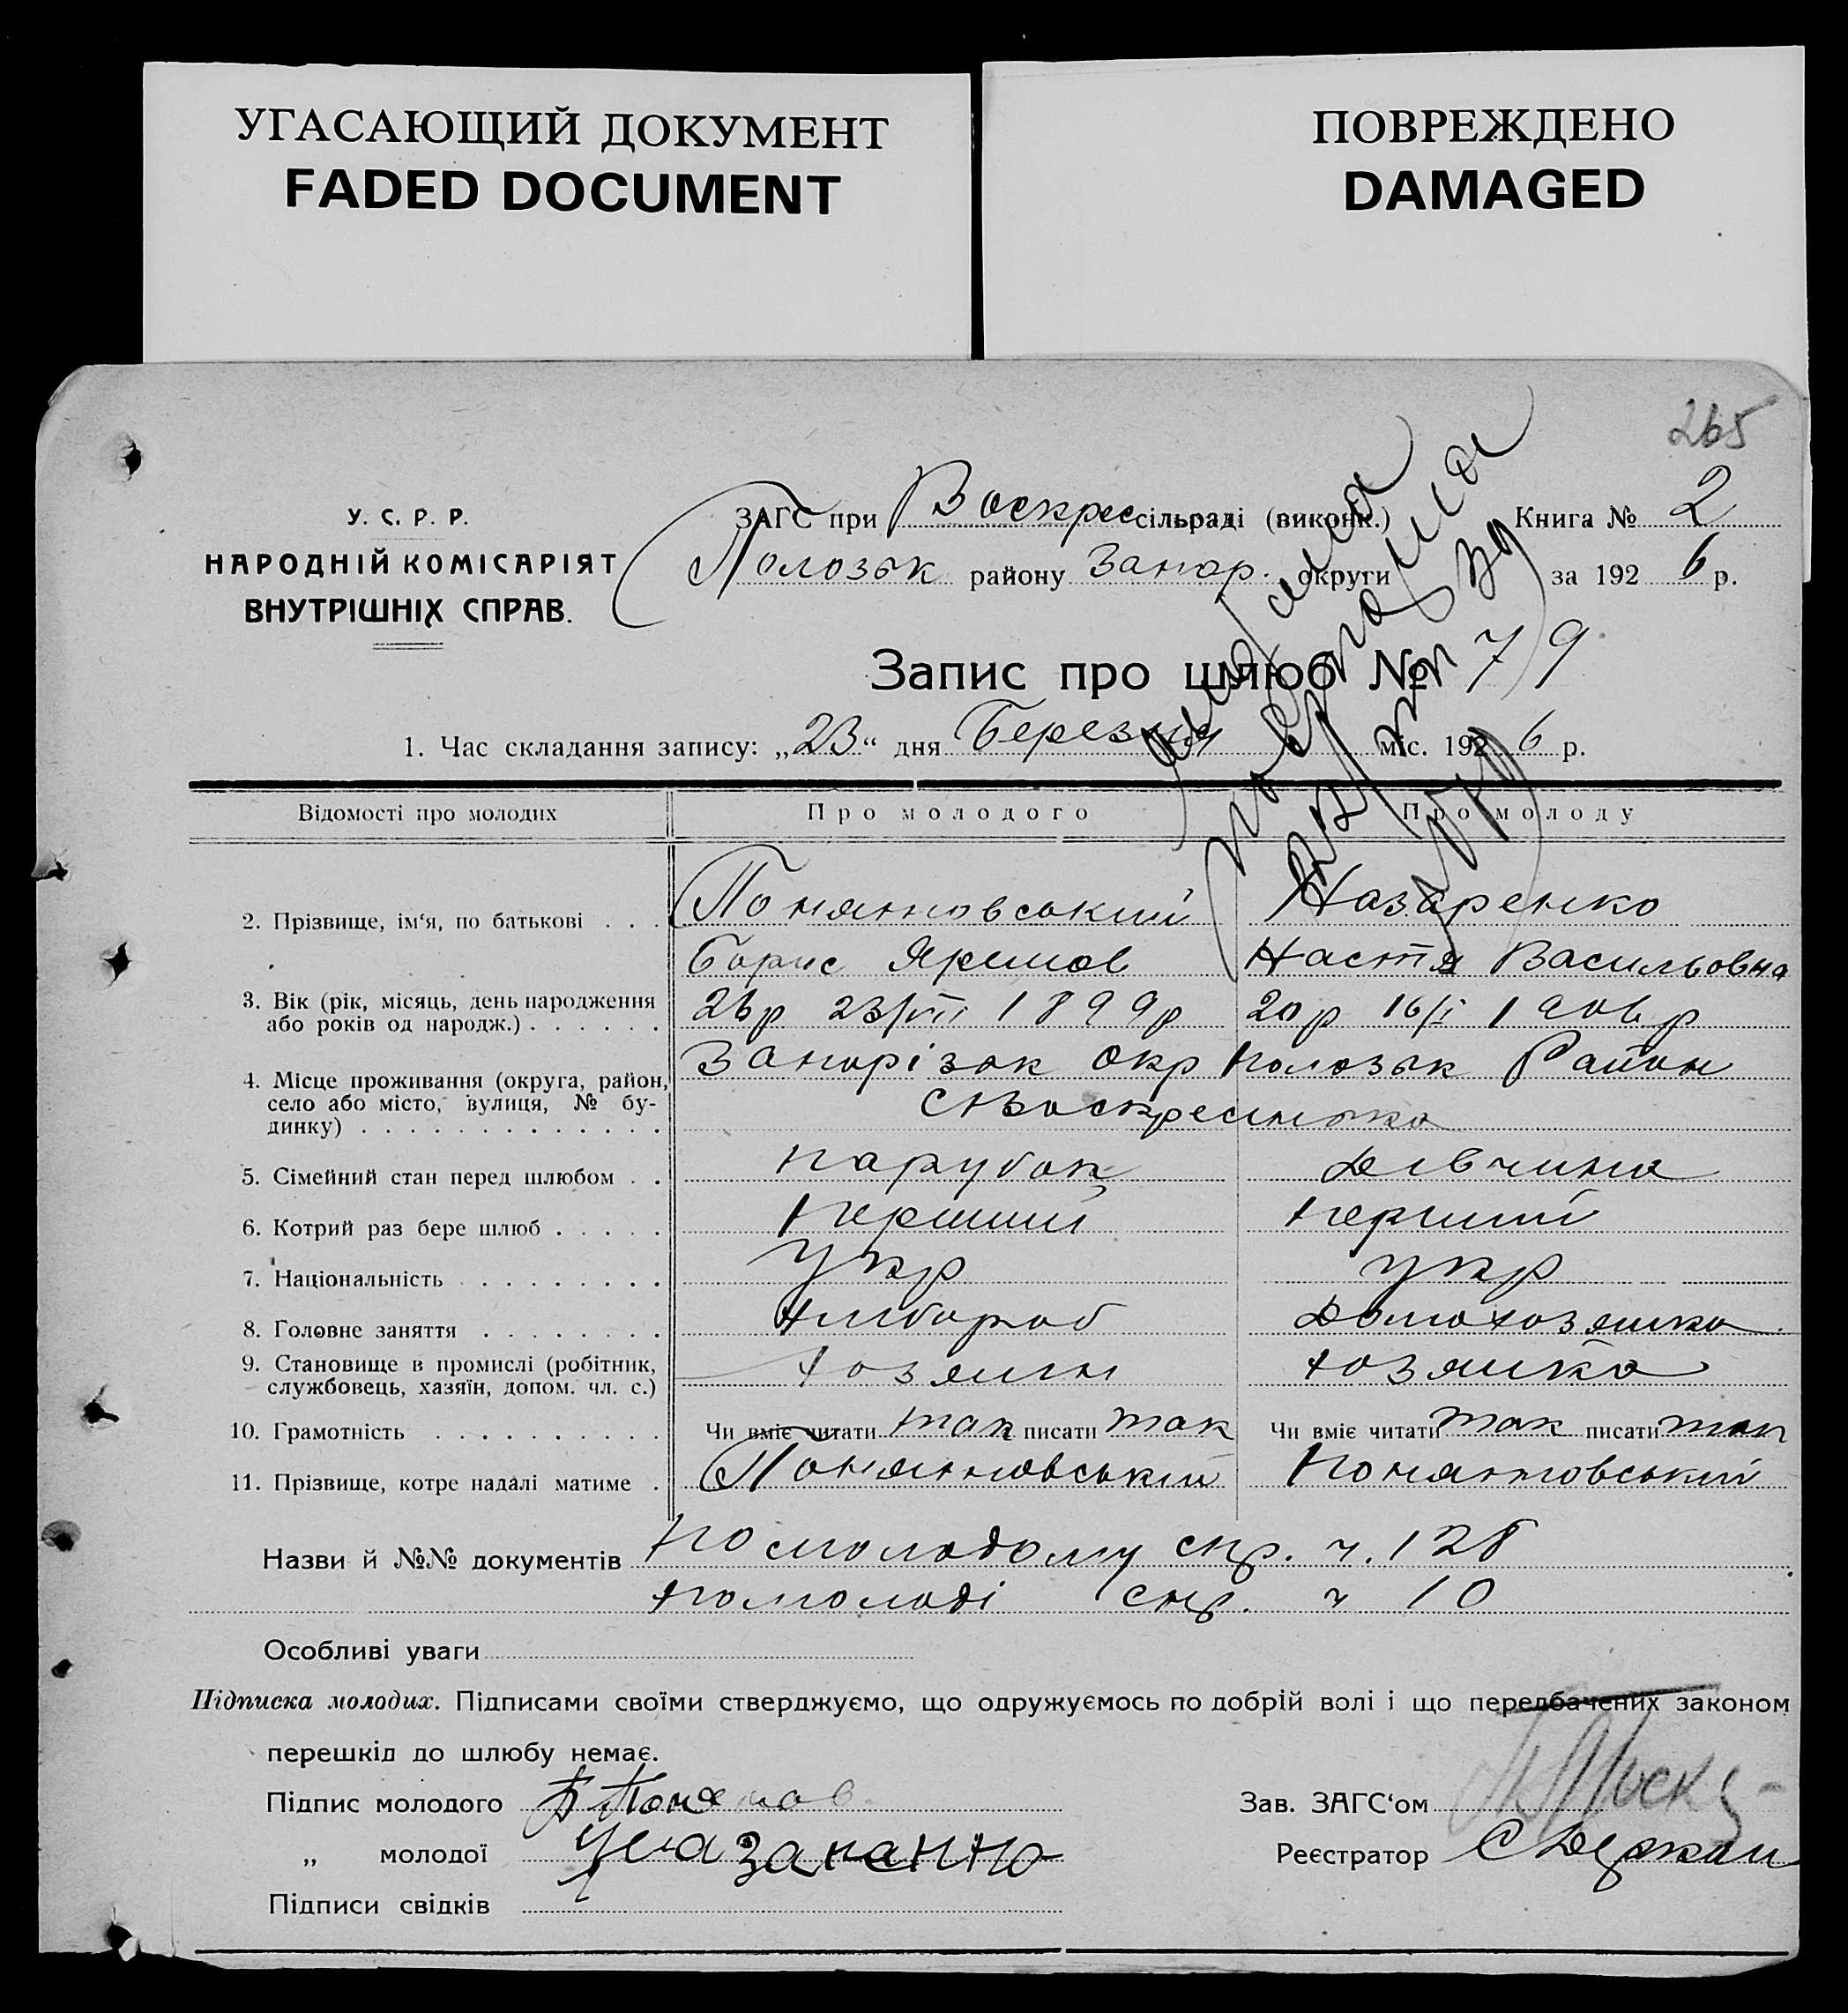 УГАСАЮЩИЙ ДОКУМЕНТ
FADED DOCUMENT
ПОВРЕЖДЕНО
DAMAGED
265
У. С. Р. Р.
НАРОДНІЙ КОМІСАРІЯТ
ВНУТРІШНІХ СПРАВ.
ЗАГС при Воскрес сільраді (виконк.) Книга № 2
Полозьк району Запор. округи за 1926 р.
Запис про шлюб № 79
1. Час складання запису: „23“ дня Березня міс. 1926 р.
Відомості про молодих Про молодого Про молоду
2. Прізвище, ім‘я, по батькові . . . Понятовський Назаренко
Борис Яремов Настя Васильовна
3. Вік (рік, місяць, день народження
або років од народж.) . . . . . . 26р 23/VII 1899р 20р 16/I 1906р
4. Місце проживання (округа, район,
село або місто, вулиця, № бу-
динку) . . . . . . . . . . . . .
Запорізьк Окр Полозьк Район
с Воскресенька
5. Сімейний стан перед шлюбом . . парубок дівчина
6. Котрий раз бере шлюб . . . . . перший перший
7. Національність . . . . . . . . . укр укр
8. Головне заняття . . . . . . . . хлібороб домохозяйка
9. Становище в промислі (робітник,
службовець, хазяїн, допом. чл. с.) хозяин хозяйка
10. Грамотність . . . . . . . . . . Чи вміє читати так писати так Чи вміє читати так писати так
11. Прізвище, котре надалі матиме . Понятовський Понятовський
Назви й №№ документів по молодому спр. ч. 128
по молоді спр. ч 10
Особливі уваги
Підписка молодих. Підписами своїми стверджуємо, що одружуємось по добрій волі і що передбачених законом
перешкід до шлюбу немає.
Підпис молодого Б Понятов Зав. ЗАГС‘ом
„ молодої Реєстратор
Підписи свідків